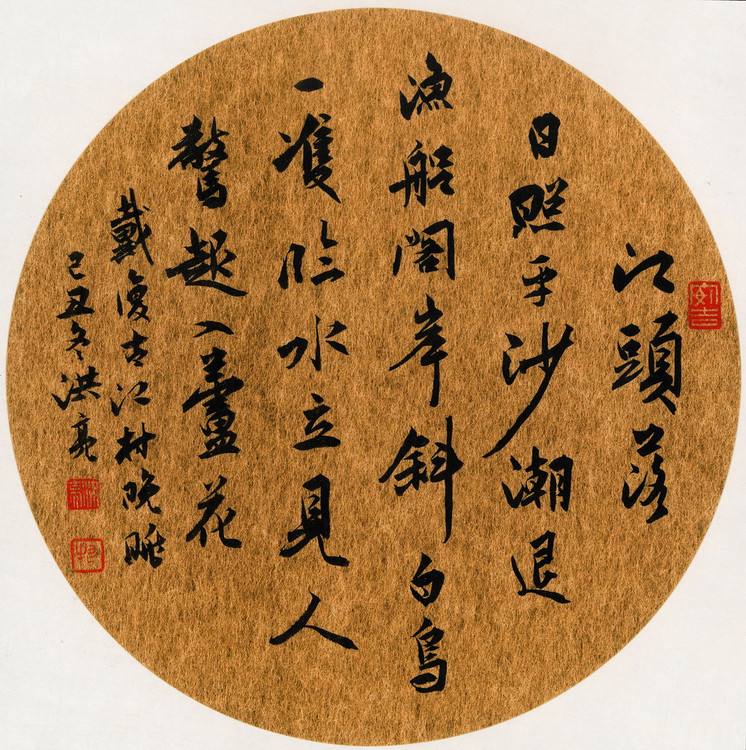 江頭落
日照平沙潮退
漁船閣岸斜白鳥
一隻臨水立見人
驚起入蘆花
戴復古江村晚眺
己丑冬洪亮